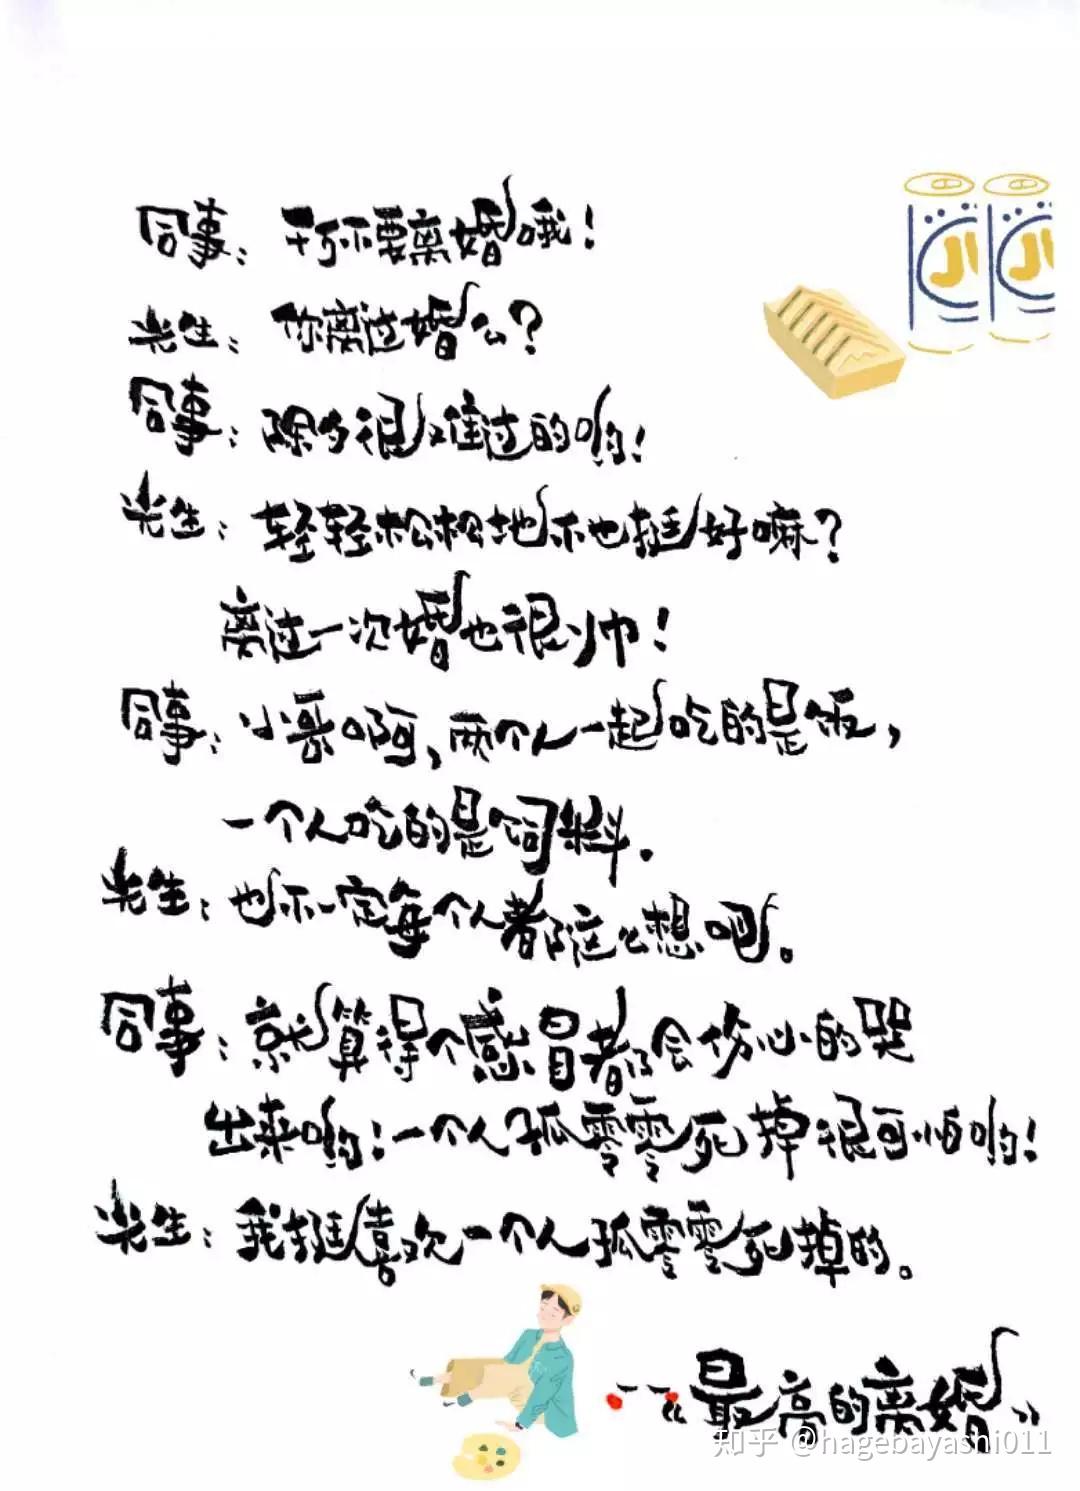 同事：千万不要离婚哦！
光生：你离过婚么？
同事：除夕很难过的哟！
光生：轻轻松松地不也挺好嘛？
离过一次婚也很帅！
同事：小哥啊，两个人一起吃的是饭，
一个人吃的是饲料.
光生：也不一定每个人都这么想吧。
同事：就算得个感冒都会伤心的哭
出来哟！一个人孤零零死掉很可怕哟！
光生：我挺喜欢一个人孤零零死掉的。
——《最高的离婚》
知乎 @hagebayashi011